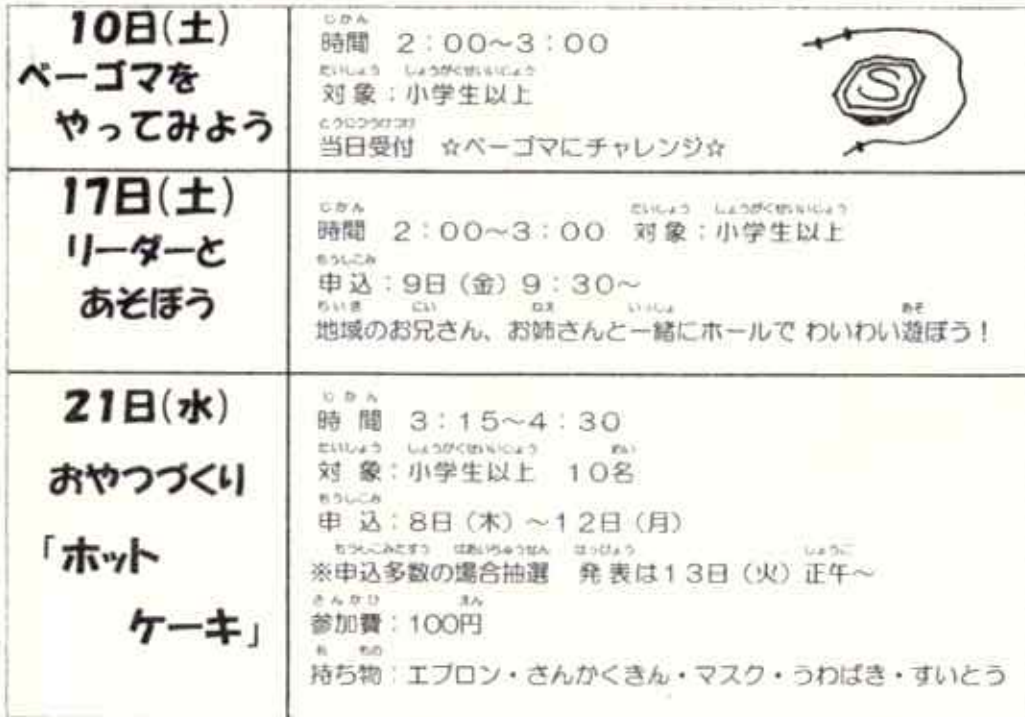 10日(土)
ベーゴマを
やってみよう
じかん
時間 2:00~3:00
たいしょう しょうがくせいいじょう
対象:小学生以上
とうじつうけつけ
当日受付 ☆ベーゴマにチャレンジ☆
S
17日(土)
リーダーと
あそぼう
じかん たいしょう しょうがくせいいじょう
時間 2:00~3:00 対象:小学生以上
もうしこみ
申込:9日(金)9:30~
ちいき にい ねえ いっしょ あそ
地域のお兄さん、お姉さんと一緒にホールで わいわい遊ぼう!
21日(水)
おやつづくり
「ホット
ケーキ」
じかん
時間 3:15~4:30
たいしょう しょうがくせいいじょう めい
対象:小学生以上 10名
もうしこみ
申込:8日(木)~12日(月)
もうしこみたすう ばあいちゅうせん はっぴょう しょうご
※申込多数の場合抽選 発表は13日(火)正午~
さんかひ えん
参加費:100円
も もの
持ち物:エプロン・さんかくきん・マスク・うわばき・すいとう